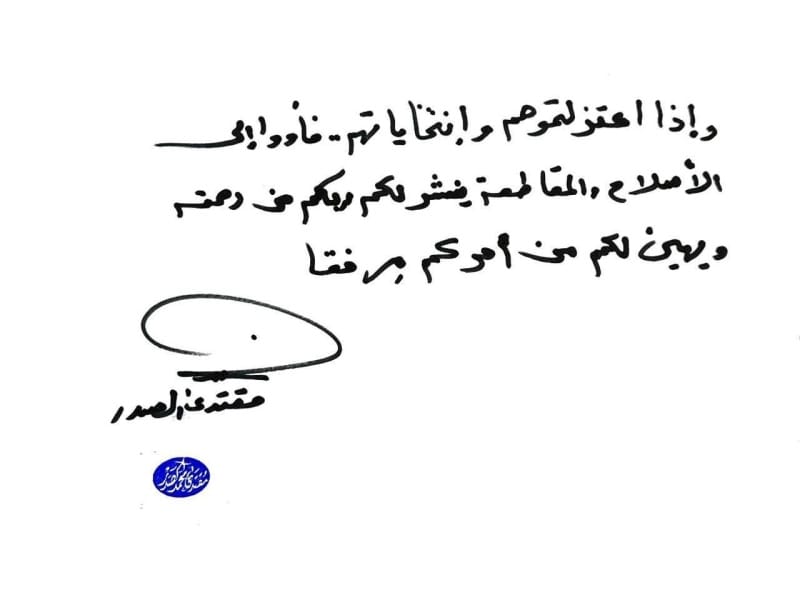 وإذا اعتزلتموهم وإنتخاباتهم.. فأووا إلى
الأصلاح والمقاطعة ينشر لكم ربكم من رحمته
ويهيئ لكم من أمركم مرفقا
مقتدى الصدر